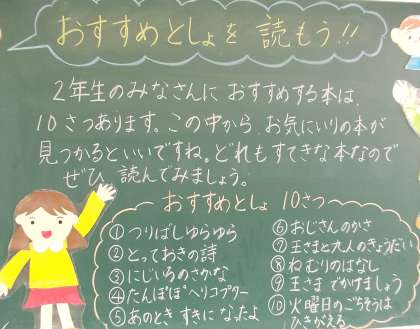 おすすめとしょを読もう!!
2年生のみなさんに おすすめする本は、
10さつあります。この中から、お気にいりの本が
見つかるといいですね。どれもすてきな本なので
ぜひ、読んでみましょう。
おすすめとしょ 10さつ
①つりばしゆらゆら
②とっておきの詩
③にじいろのさかな
④たんぽぽヘリコプター
⑤あのとき すきに なったよ
⑥おじさんのかさ
⑦王さまと九人のきょうだい
⑧ねむりのはなし
⑨王さま でかけましょう
⑩火曜日のごちそうは
ひきがえる